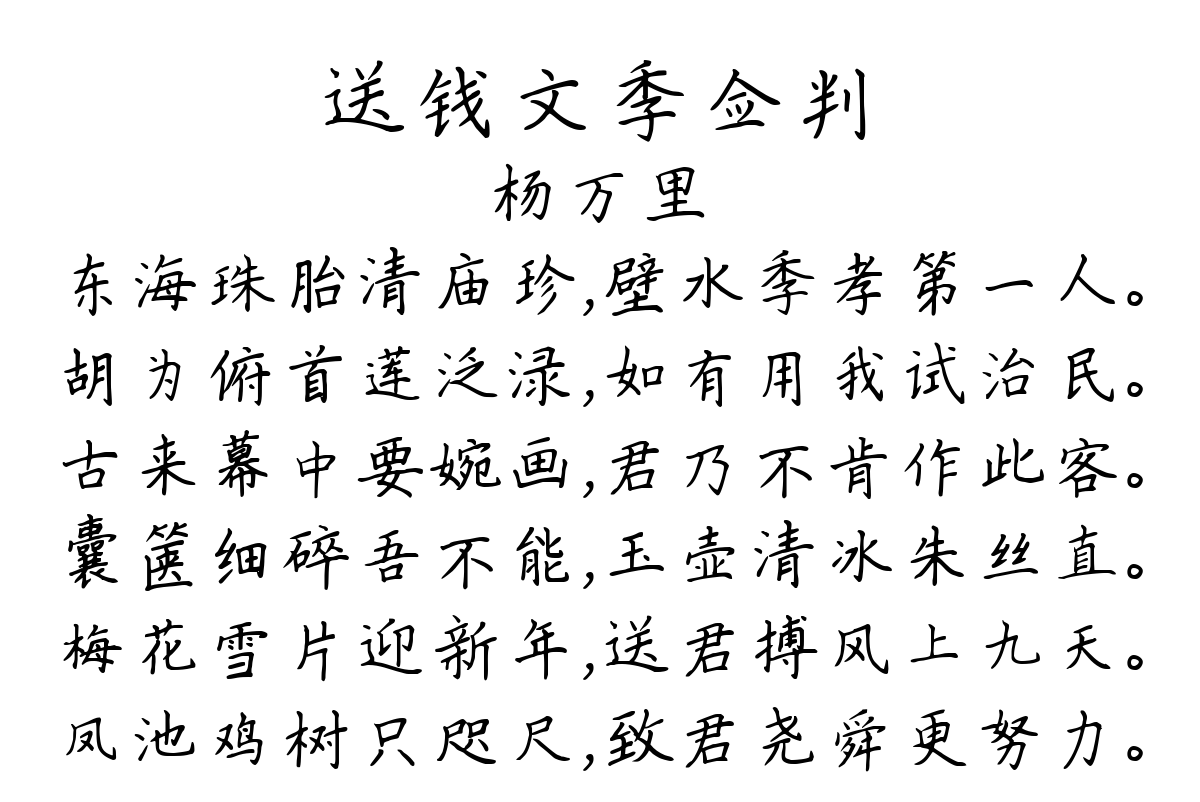 送钱文季佥判
杨万里
东海珠胎清庙珍,壁水季孝第一人。
胡为俯首莲泛渌,如有用我试治民。
古来幕中要婉画,君乃不肯作此客。
囊箧细碎吾不能,玉壶清冰朱丝直。
梅花雪片迎新年,送君搏风上九天。
凤池鸡树只咫尺,致君尧舜更努力。